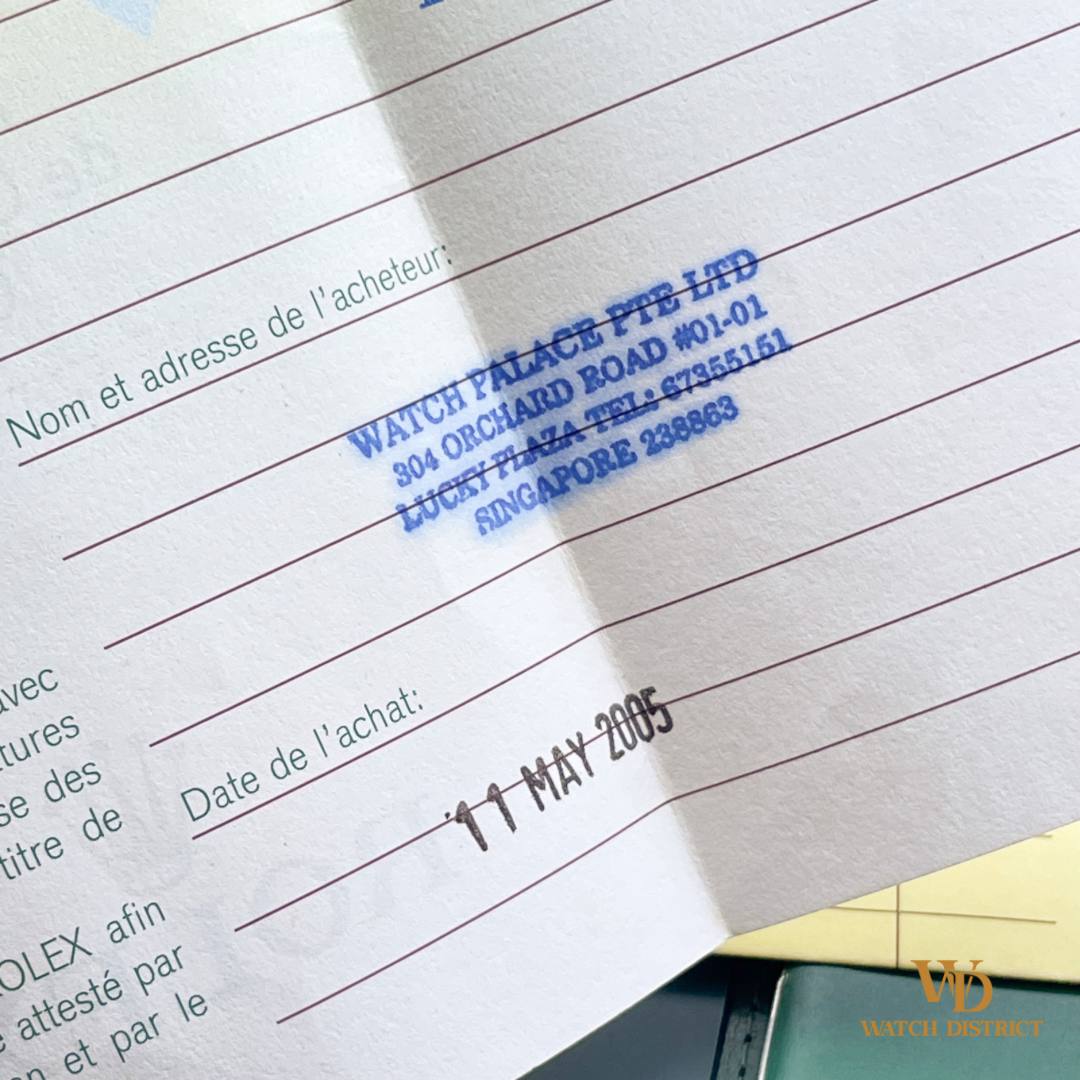 Nom et adresse de l'acheteur:
WATCH PALACE PTE LTD
304 ORCHARD ROAD #01-01
LUCKY PLAZA TEL: 67355151
SINGAPORE 238863
avec
tures
se des
titre de
Date de l'achat:
11 MAY 2005
OLEX afin
attesté par
n et par le
WD
WATCH DISTRICT